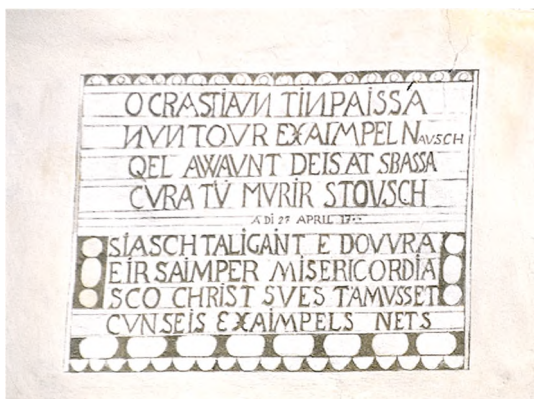 O CRASTIAUN TINPAISSA
NUN TOUR EXAIMPEL NAUSCH
QEL AWAUNT DEIS AT SBASSA
CURA TÜ MURIR STOUSCH
A DI 27 APRIL
SIASCH TALIGANT E DOVVRA
EIR SAIMPER MISERICORDIA
SCO CHRIST SVES TAMUSSET
CUN SEIS EXAIMPELS NETS